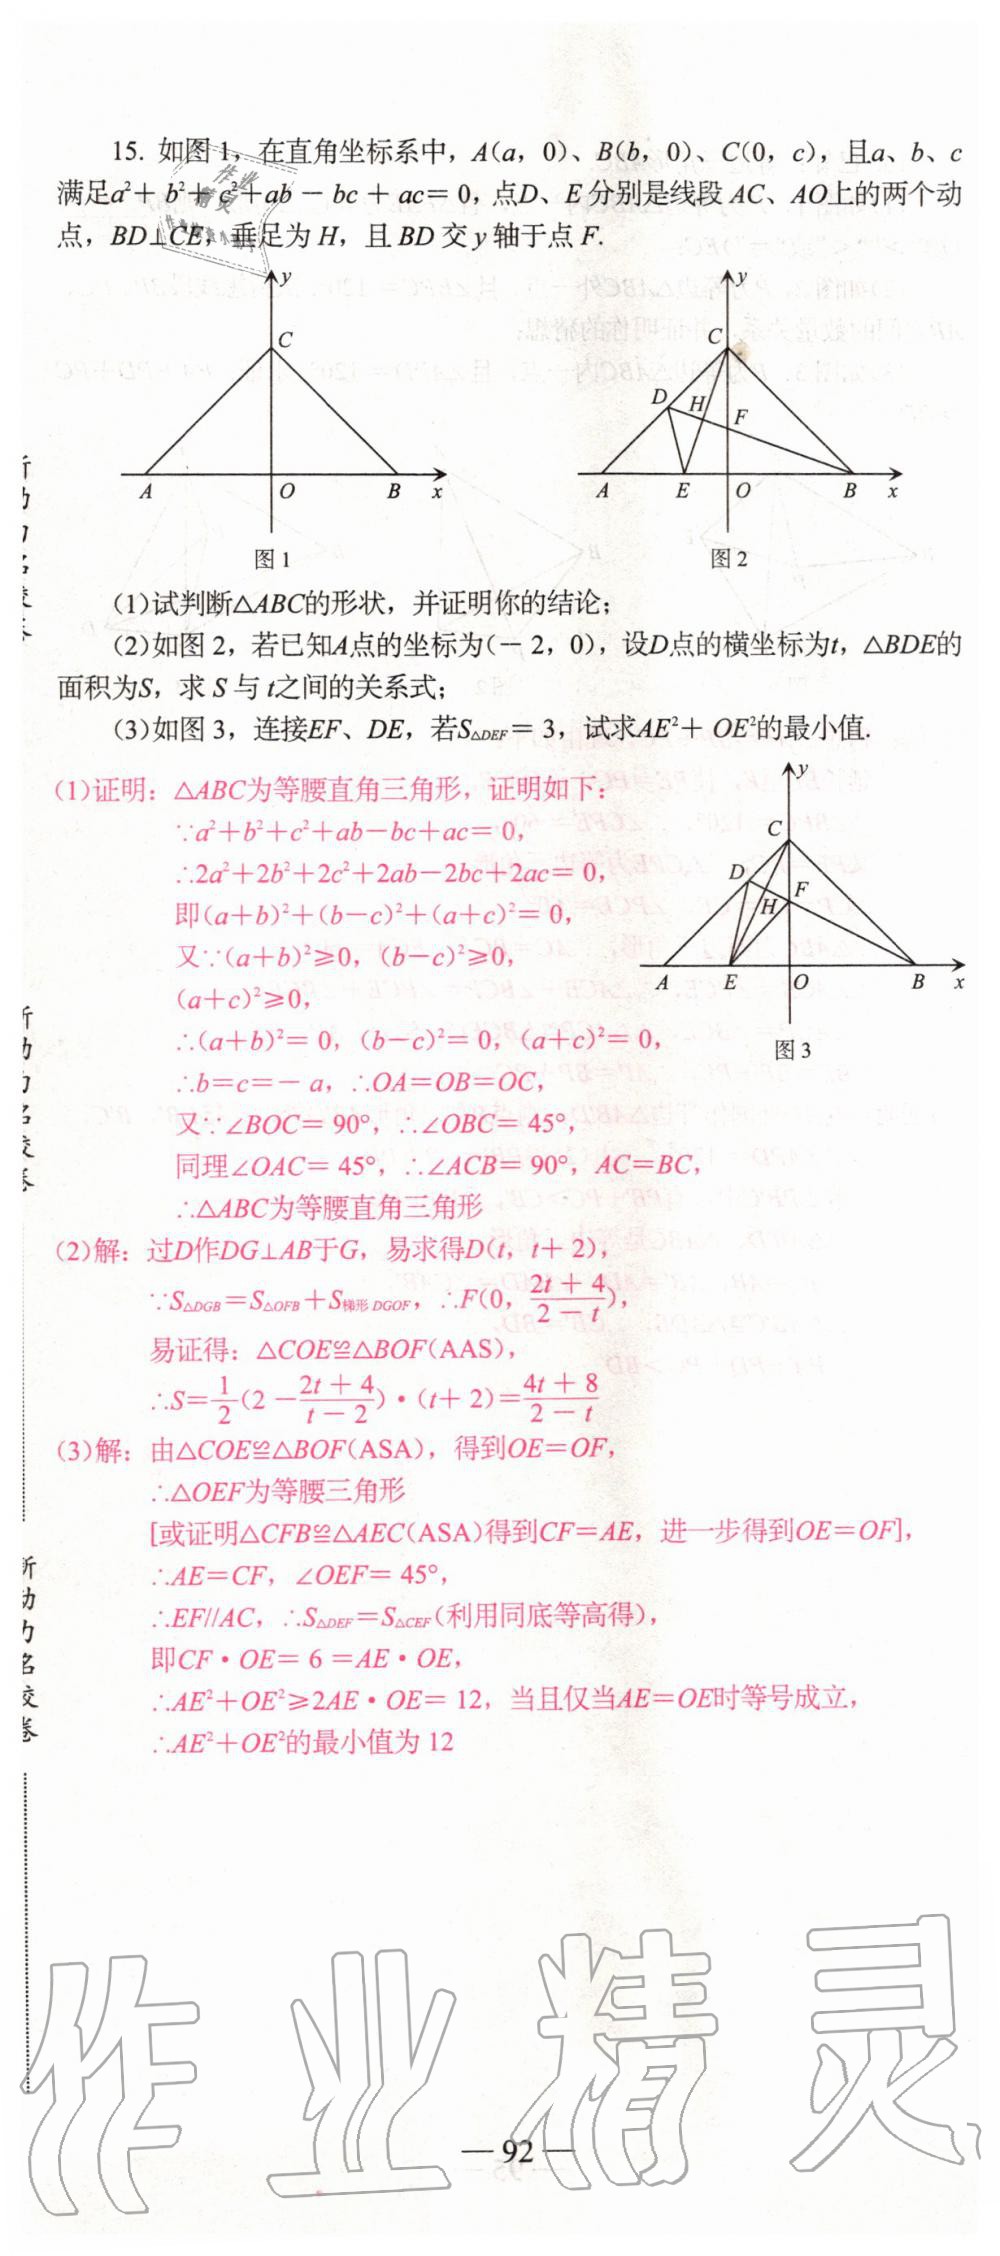 15. 如图1，在直角坐标系中，A(a，0)、B(b，0)、C(0，c)，且a、b、c
满足a²＋b²＋c²＋ab－bc＋ac＝0，点D、E分别是线段AC、AO上的两个动
点，BD⊥CE，垂足为H，且BD交y轴于点F.
y
C
A
O
B
x
图1
y
C
D
H
F
A
E
O
B
x
图2
(1)试判断△ABC的形状，并证明你的结论；
(2)如图2，若已知A点的坐标为(－2，0)，设D点的横坐标为t，△BDE的
面积为S，求S与t之间的关系式；
(3)如图3，连接EF、DE，若S△DEF＝3，试求AE²＋OE²的最小值.
y
C
D
F
H
A
E
O
B
x
图3
(1)证明：△ABC为等腰直角三角形，证明如下：
∵a²＋b²＋c²＋ab－bc＋ac＝0，
∴2a²＋2b²＋2c²＋2ab－2bc＋2ac＝0，
即(a＋b)²＋(b－c)²＋(a＋c)²＝0，
又∵(a＋b)²≥0，(b－c)²≥0，
(a＋c)²≥0，
∴(a＋b)²＝0，(b－c)²＝0，(a＋c)²＝0，
∴b＝c＝－a，∴OA＝OB＝OC，
又∵∠BOC＝90°，∴∠OBC＝45°，
同理∠OAC＝45°，∴∠ACB＝90°，AC＝BC，
∴△ABC为等腰直角三角形
(2)解：过D作DG⊥AB于G，易求得D(t，t＋2)，
∵S△DGB＝S△OFB＋S梯形DGOF，∴F(0，(2t＋4)/(2－t))，
易证得：△COE≌△BOF(AAS)，
∴S＝1/2(2－(2t＋4)/(t－2))·(t＋2)＝(4t＋8)/(2－t)
(3)解：由△COE≌△BOF(ASA)，得到OE＝OF，
∴△OEF为等腰三角形
[或证明△CFB≌△AEC(ASA)得到CF＝AE，进一步得到OE＝OF]，
∴AE＝CF，∠OEF＝45°，
∴EF//AC，∴S△DEF＝S△CEF(利用同底等高得)，
即CF·OE＝6＝AE·OE，
∴AE²＋OE²≥2AE·OE＝12，当且仅当AE＝OE时等号成立，
∴AE²＋OE²的最小值为12
作业精灵
—92—